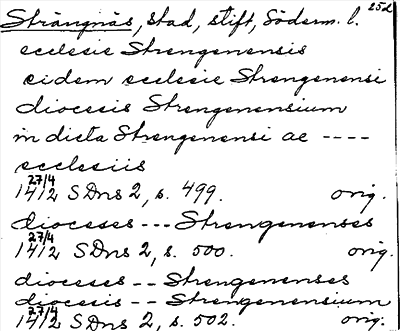 Strängnäs, stad, stift, Söderm. l. 252
ecclesie Strengenensis
eidem ecclesie Strengenensi
diocesis Strengenensium
in dicta Strengenensi ac ----
ecclesiis
27/4
1412 SDns 2, s. 499. orig.
dioceses --- Strengenenses
27/4
1412 SDns 2, s. 500. orig.
dioceses -- Strengenenses
diocesis -- Strengenensium
27/4
1412 SDns 2, s. 502. orig.